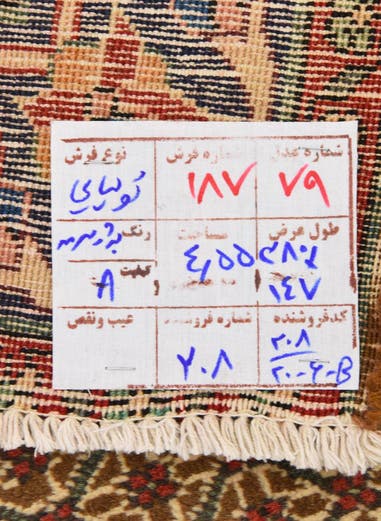 شماره عدل شماره فرش نوع فرش
۷۹ ۱۸۷ تویسرکان
طول عرض مساحت رنگ
۴٫۵۵
۱۴۷ A
کدفروشنده شماره فروشنده عیب ونقص
۲۰۸ ۲۰۸
۲۰-۶-B